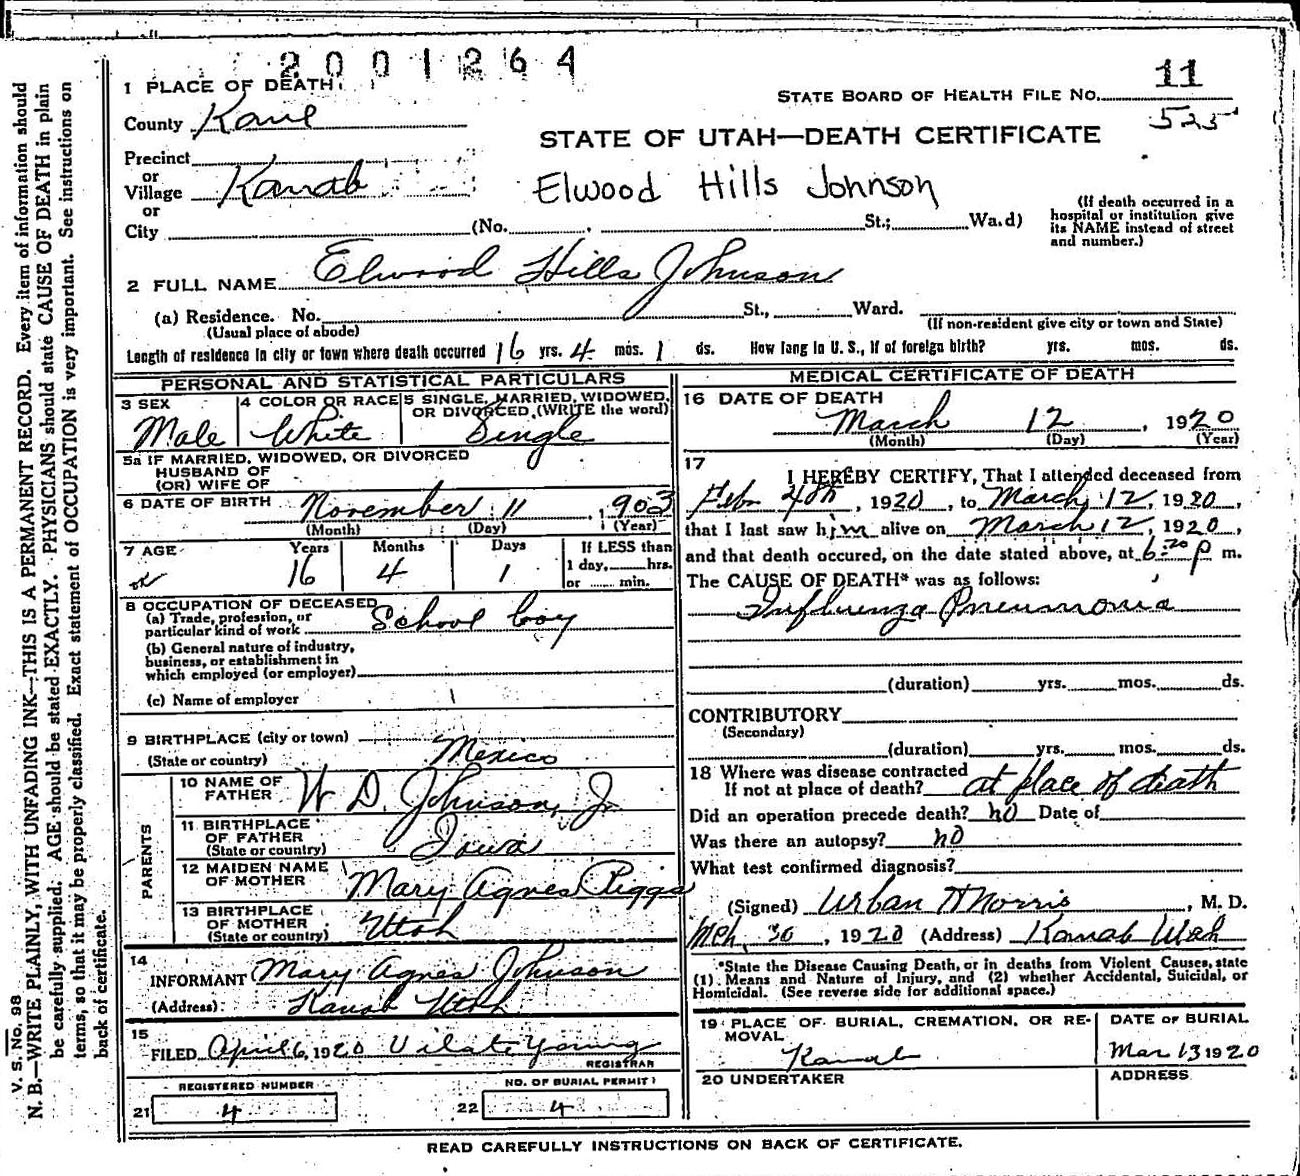 2001264
11
1 PLACE OF DEATH
STATE BOARD OF HEALTH FILE No.
525
County Kane
STATE OF UTAH—DEATH CERTIFICATE
Precinct
or
Village Kanab
Elwood Hills Johnson
or
City (No. St.; Wa.d)
(If death occurred in a
hospital or institution give
its NAME instead of street
and number.)
2 FULL NAME Elwood Hills Johnson
(a) Residence. No. St., Ward.
(Usual place of abode)
(If non-resident give city or town and State)
Length of residence in city or town where death occurred 16 yrs. 4 mos. 1 ds. How long in U. S., if of foreign birth? yrs. mos. ds.
PERSONAL AND STATISTICAL PARTICULARS
3 SEX
Male
4 COLOR OR RACE
White
5 SINGLE, MARRIED, WIDOWED,
OR DIVORCED, (WRITE the word)
Single
5a IF MARRIED, WIDOWED, OR DIVORCED
HUSBAND OF
(OR) WIFE OF
6 DATE OF BIRTH November 11, 1903
(Month) (Day) (Year)
7 AGE Years Months Days
16 4 1
If LESS than
1 day, hrs.
or min.
8 OCCUPATION OF DECEASED
(a) Trade, profession, or
particular kind of work School boy
(b) General nature of industry,
business, or establishment in
which employed (or employer)
(c) Name of employer
9 BIRTHPLACE (city or town)
(State or country) Mexico
PARENTS
10 NAME OF
FATHER W D. Johnson, Jr
11 BIRTHPLACE
OF FATHER
(State or country) Iowa
12 MAIDEN NAME
OF MOTHER Mary Agnes Riggs
13 BIRTHPLACE
OF MOTHER
(State or country) Utah
14
INFORMANT Mary Agnes Johnson
(Address) Kanab Utah
15
FILED April 6, 1920 Vilate Young
REGISTRAR
REGISTERED NUMBER
21 4
NO. OF BURIAL PERMIT
22 4
MEDICAL CERTIFICATE OF DEATH
16 DATE OF DEATH
March 12, 1920
(Month) (Day) (Year)
17
I HEREBY CERTIFY, That I attended deceased from
Febr 4th, 1920, to March 12, 1920,
that I last saw him alive on March 12, 1920,
and that death occured, on the date stated above, at 6:20 P m.
The CAUSE OF DEATH* was as follows:
Influenza Pneumonia
(duration) yrs. mos. ds.
CONTRIBUTORY
(Secondary)
(duration) yrs. mos. ds.
18 Where was disease contracted
If not at place of death? at place of death
Did an operation precede death? no Date of
Was there an autopsy? no
What test confirmed diagnosis?
(Signed) Urban H Morris, M. D.
Mch, 30, 1920 (Address) Kanab Utah
*State the Disease Causing Death, or in deaths from Violent Causes, state
(1) Means and Nature of Injury, and (2) whether Accidental, Suicidal, or
Homicidal. (See reverse side for additional space.)
19 PLACE OF BURIAL, CREMATION, OR RE-
MOVAL
Kanab
DATE OF BURIAL
Mar 13 1920
20 UNDERTAKER
ADDRESS
READ CAREFULLY INSTRUCTIONS ON BACK OF CERTIFICATE.
V. S. No. 98
N. B.—WRITE PLAINLY, WITH UNFADING INK—THIS IS A PERMANENT RECORD. Every item of information should
be carefully supplied. AGE should be stated EXACTLY. PHYSICIANS should state CAUSE OF DEATH in plain
terms, so that it may be properly classified. Exact statement of OCCUPATION is very important. See instructions on
back of certificate.